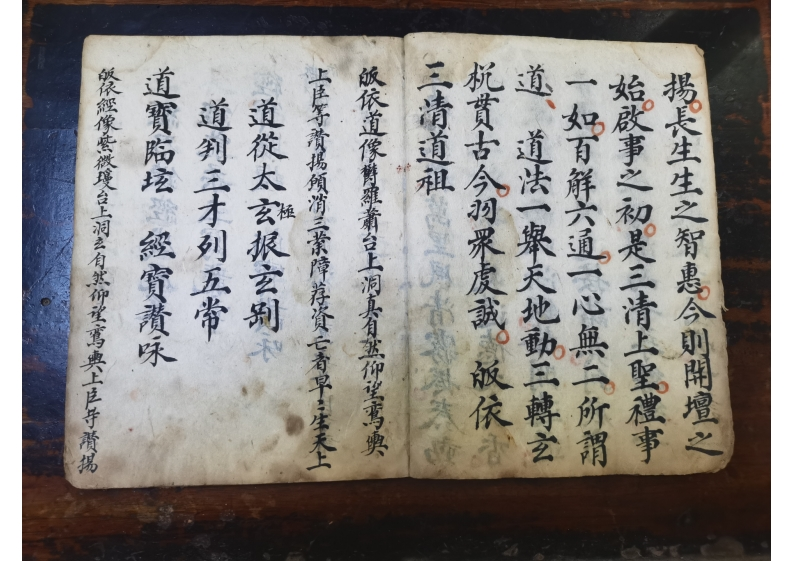 揚長生生之智惠今則開壇之
始啟事之初是三清上聖禮事
一如百解六通一心無二所謂
道道法一舉天地動三轉玄
貫古今羽眾虔誠皈依
三清道祖
皈依道像欝羅蕭台上洞真自然仰望鸞輿
上臣等讚揚傾消三業障荐資亡者早〻生天上
道從太玄極根玄剖
道判三才列五常
道寶臨坛 經寶讚咏
皈依經像紫微瓊台上洞玄自然仰望鸞輿上臣等讚揚